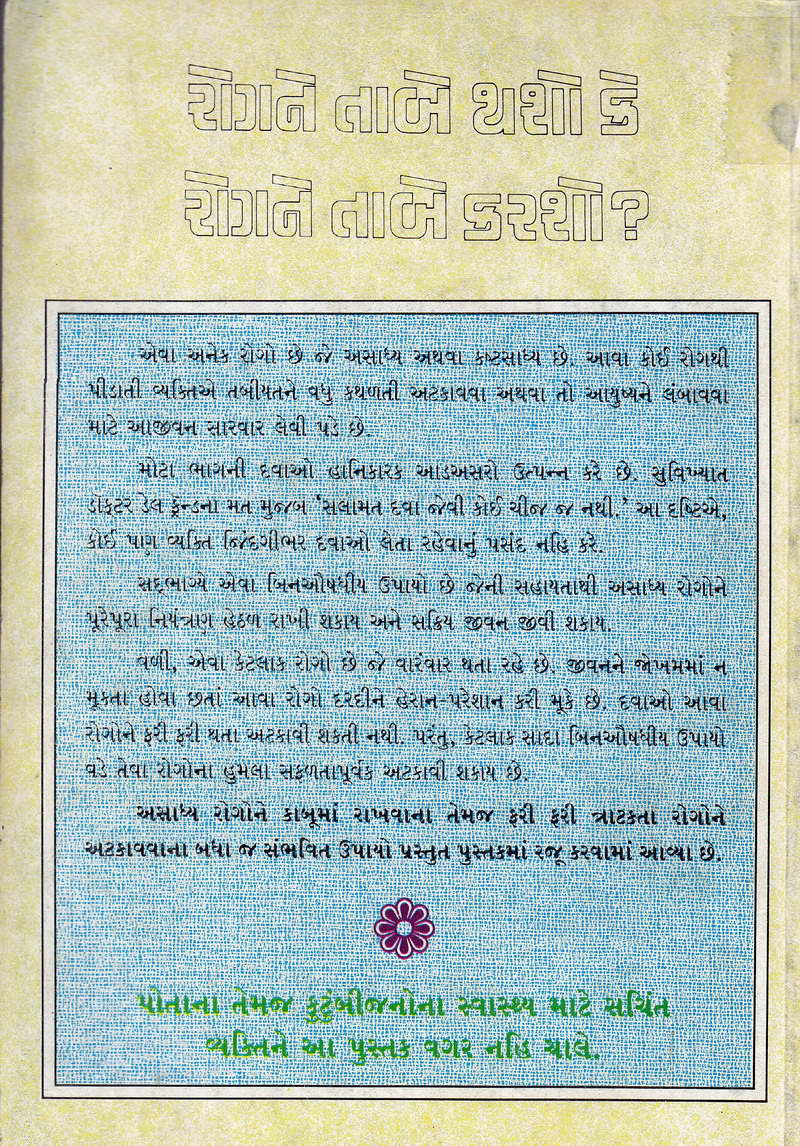 રોગને તાબે થશો કે
રોગને તાબે કરશો?
એવા અનેક રોગો છે જે અસાધ્ય અથવા કષ્ટસાધ્ય છે. આવા કોઈ રોગથી
પીડાતી વ્યક્તિએ તબીયતને વધુ કથળતી અટકાવવા અથવા તો આયુષ્યને લંબાવવા
માટે આજીવન સારવાર લેવી પડે છે.
મોટા ભાગની દવાઓ હાનિકારક આડઅસરો ઉત્પન્ન કરે છે. સુવિખ્યાત
ડૉક્ટર ડેલ ફ્રેન્ડના મત મુજબ ‘સલામત દવા જેવી કોઈ ચીજ જ નથી.’ આ દૃષ્ટિએ,
કોઈ પણ વ્યક્તિ જિંદગીભર દવાઓ લેતા રહેવાનું પસંદ નહિ કરે.
સદ્ભાગ્યે એવા બિનઔષધીય ઉપાયો છે જેની સહાયતાથી અસાધ્ય રોગોને
પૂરેપૂરા નિયંત્રણ હેઠળ રાખી શકાય અને સક્રિય જીવન જીવી શકાય.
વળી, એવા કેટલાક રોગો છે જે વારંવાર થતા રહે છે. જીવનને જોખમમાં ન
મૂકતા હોવા છતાં આવા રોગો દરદીને હેરાન-પરેશાન કરી મૂકે છે. દવાઓ આવા
રોગોને ફરી ફરી થતા અટકાવી શકતી નથી. પરંતુ, કેટલાક સાદા બિનઔષધીય ઉપાયો
વડે તેવા રોગોના હુમલા સફળતાપૂર્વક અટકાવી શકાય છે.
અસાધ્ય રોગોને કાબૂમાં રાખવાના તેમજ ફરી ફરી ત્રાટકતા રોગોને
અટકાવવાના બધા જ સંભવિત ઉપાયો પ્રસ્તુત પુસ્તકમાં રજૂ કરવામાં આવ્યા છે.
પોતાના તેમજ કુટુંબીજનોના સ્વાસ્થ્ય માટે સચિંત
વ્યક્તિને આ પુસ્તક વગર નહિ ચાલે.